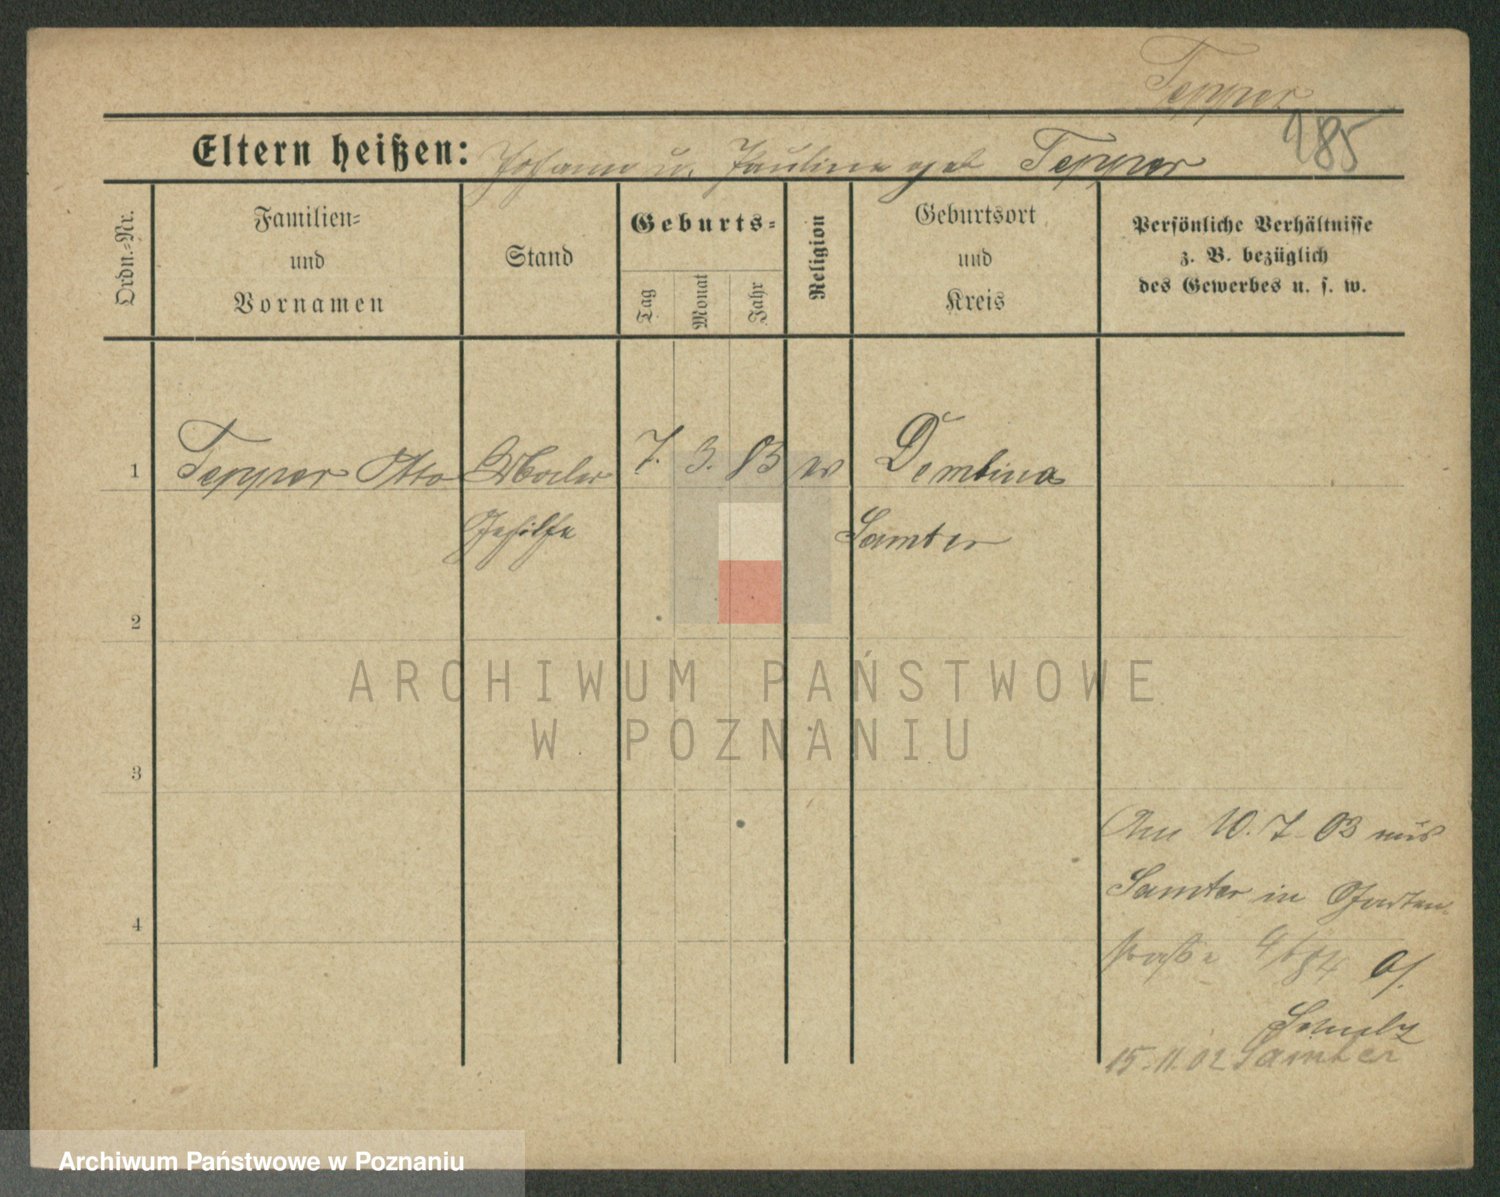 Tepper
185
Eltern heißen: Johann u. Pauline geb Tepper
Ordn.=Nr.
Familien=
und
Vornamen
Stand
Geburts=
Tag
Monat
Jahr
Religion
Geburtsort
und
Kreis
Persönliche Verhältnisse
z. B. bezüglich
des Gewerbes u. s. w.
1 Tepper Otto 7. 3. 83 ev
Gehilfe Samter
2
ARCHIWUM PAŃSTWOWE
W POZNANIU
3
Am 10. 7. 03 aus
Samter in Garten-
4
straße
Schulz
15.11.02 Samter
Archiwum Państwowe w Poznaniu